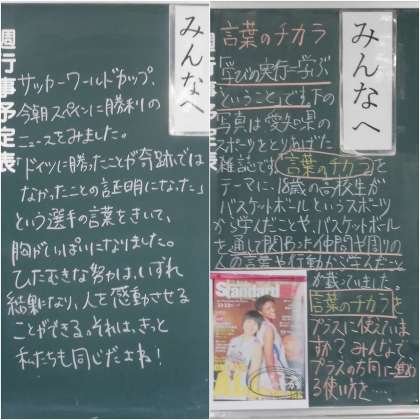 週行事予定表
みんなへ
サッカーワールドカップ、
今朝スペインに勝利の
ニュースをみました。
「ドイツに勝ったことが奇跡では
なかったことの証明になった」
という選手の言葉をきいて、
胸がいっぱいになりました。
ひたむきな努力は、いずれ
結果になり、人を感動させる
ことができる。それは、きっと
私たちも同じだよね！
週行事予定表
みんなへ
言葉のチカラ
学びの実行=学ぶ
ということ」です。下の
写真は愛知県の
スポーツをとりあげた
雑誌です。言葉のチカラを
テーマに、18歳の高校生が
バスケットボールというスポーツ
から学んだことや、バスケットボール
を通して関わった仲間や周りの
人の言葉や行動から学んだこと
が載っていました。
言葉のチカラを
プラスに使えていま
すか？みんなで
プラスの方向に進め
る使い方を…
Standard